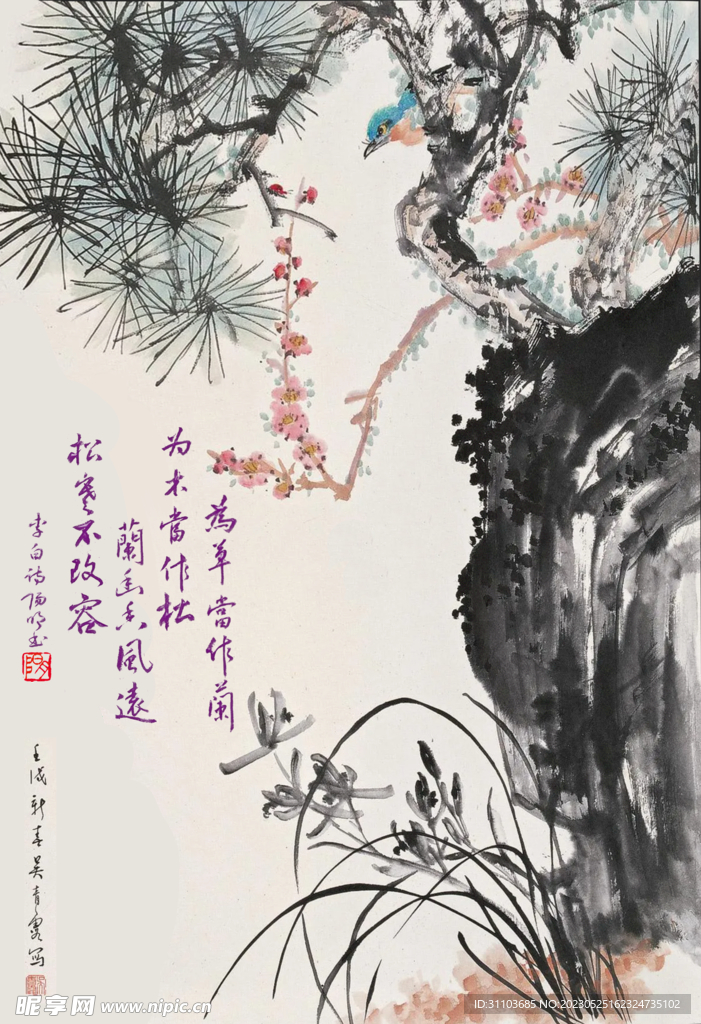 為草當作蘭
为木當作松
蘭幽香風遠
松寒不改容
李白詩陽明书
壬戌新春吴青霞写
昵享网 www.nipic.cn
ID:31103685 NO:20230525162324735102